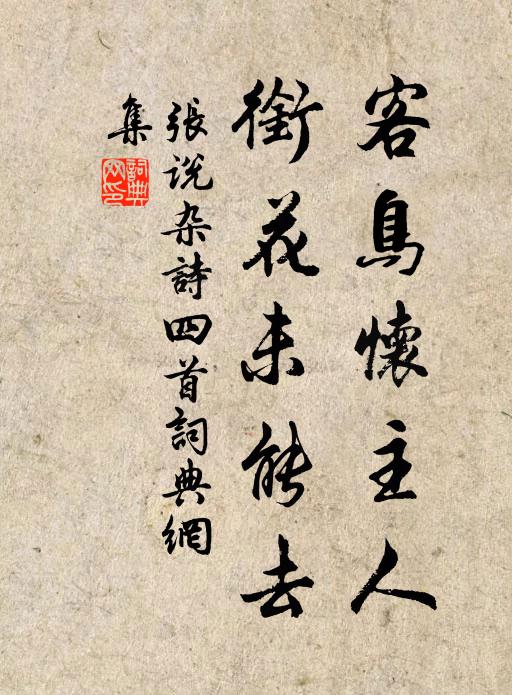 客鳥懷主人
銜花未能去
張説杂詩四首詞典網
集
詞典網印